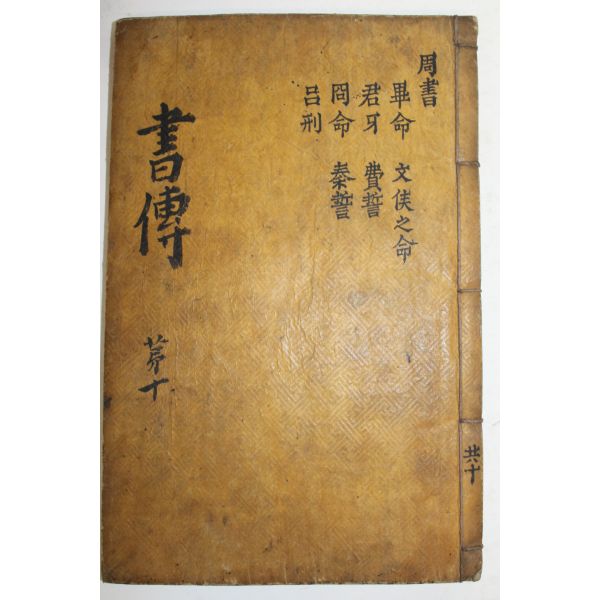 周書
畢命 文侯之命
君牙 費誓
冏命 秦誓
呂刑
書傳
苐十
共十